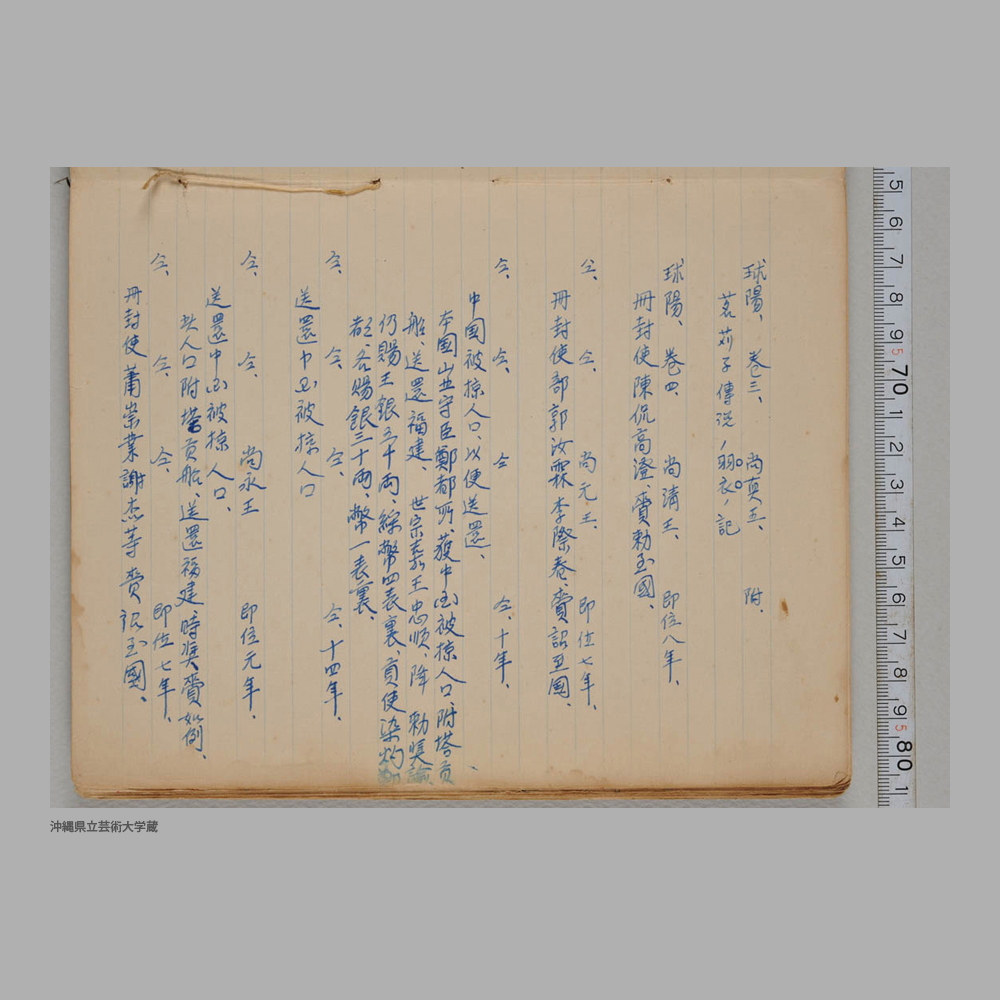 球陽、卷三、尚真王、附、
茗苅子傳説ノ羽衣ノ記
球陽、卷四、尚清王、即位八年、
冊封使陳侃高澄、賫勅至國、
仝、仝、尚元王、即位七年、
冊封使郭汝霖李際春、賫詔至國、
仝、仝、仝、仝、十年、
中国被掠人口、以使送還、
本国山北守臣鄭都所獲中国被掠人口、附塔貢
船、送還福建、世宗嘉王忠順、降 勅奨諭、
仍賜王銀五十両、綵幣四表裏、貢使梁灼
都、各賜銀三十両、幣一表裏、
仝、仝、仝、仝、十四年、
送還中国被掠人口
仝、仝、尚永王 即位元年、
送還中国被掠人口、
人口附塔貢船、送還福建、時奨賫如例、
仝、仝、仝、即位七年、
冊封使蕭崇業謝杰等賫詔至國、
5 6 7 8 9 70 1 2 3 4 5 6 7 8 9 80 1
沖縄県立芸術大学蔵